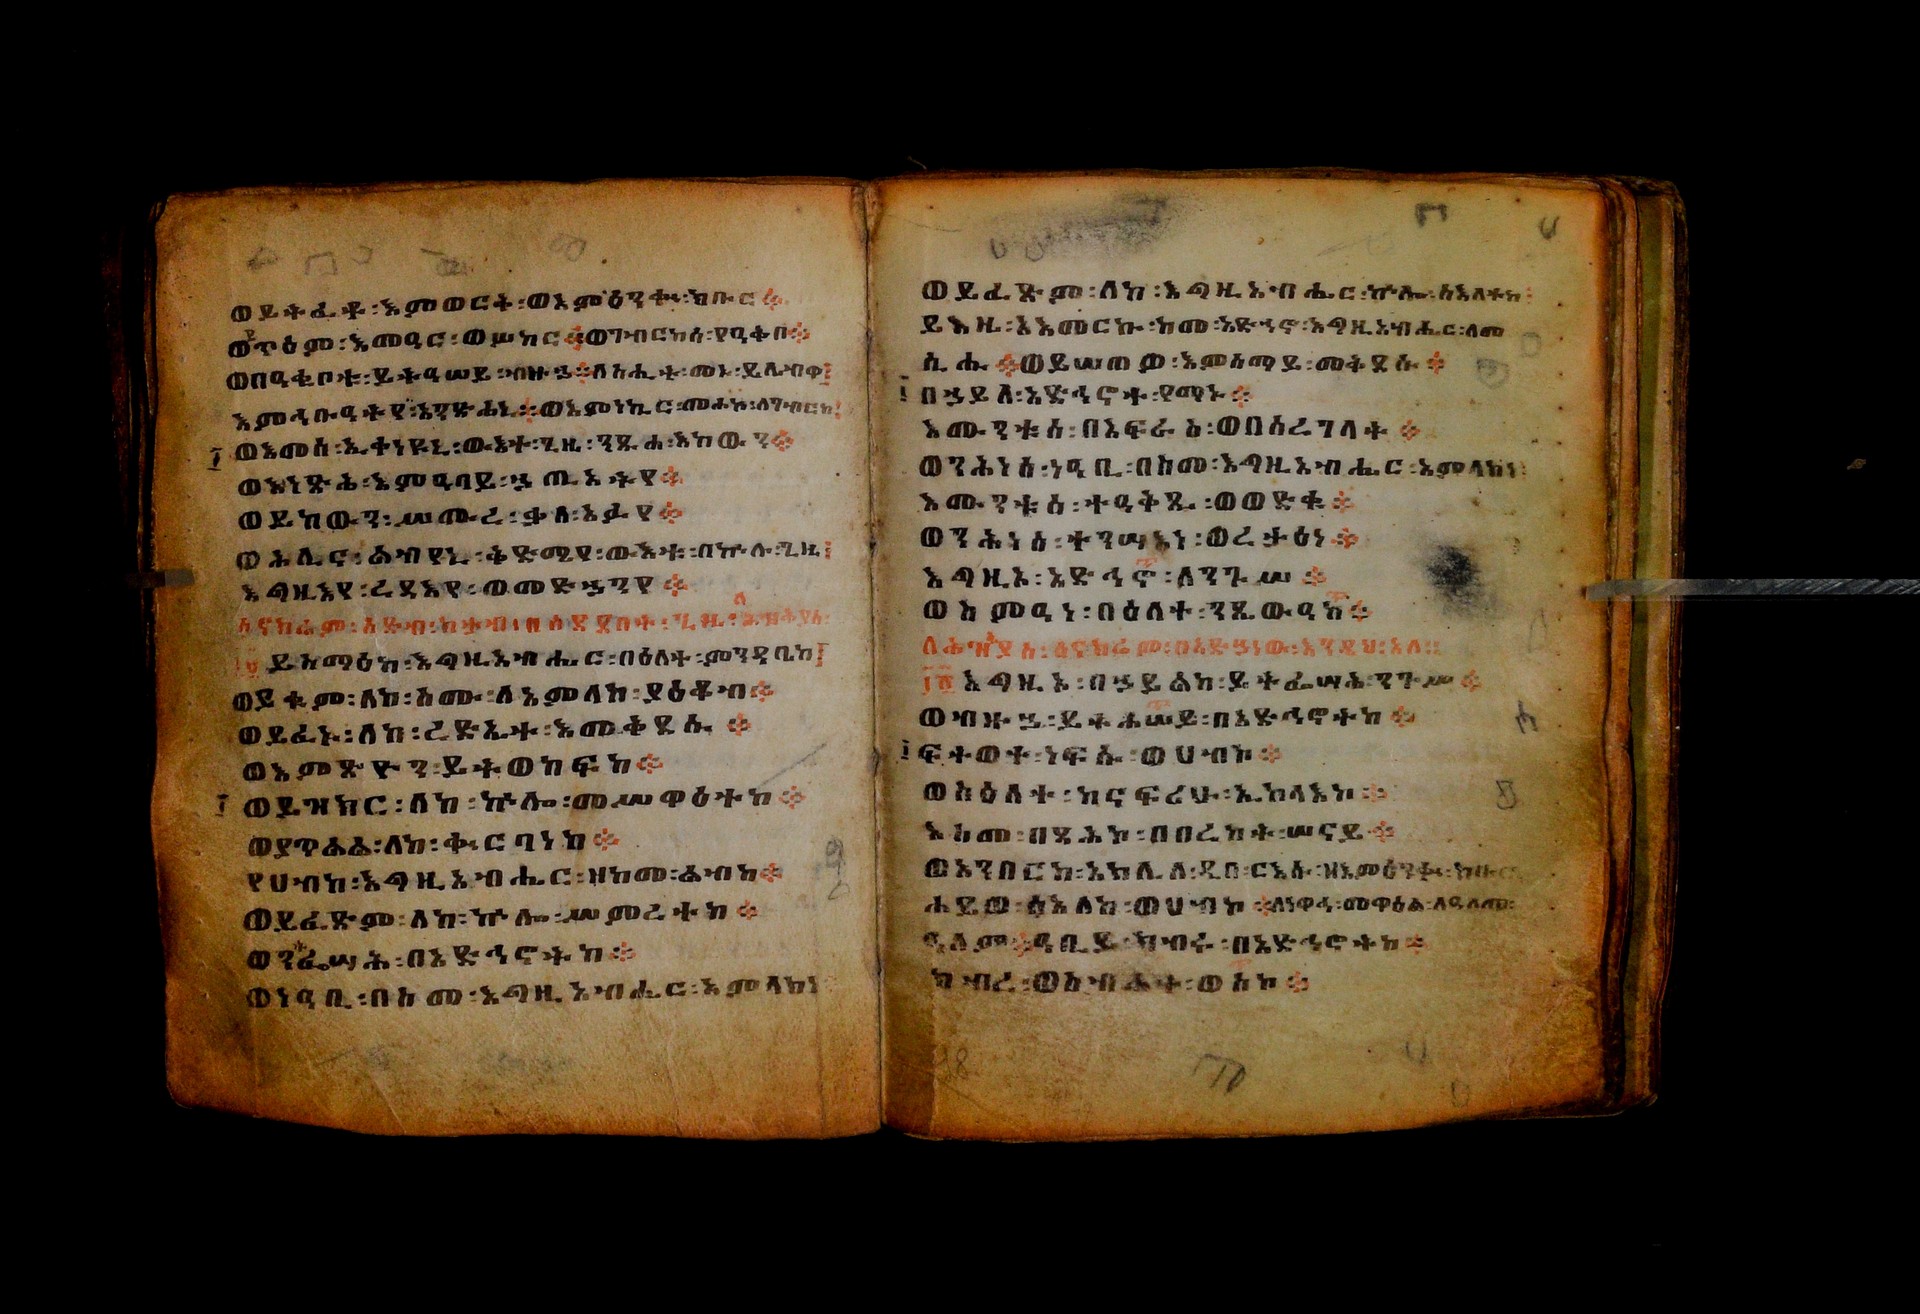 ወይትፈቶ፡ እምወርቅ፡ ወእምዕንቍ፡ ክቡር።
ወይጥዕም፡ እመዓር፡ ወሦከር፡ ወገብርከሰ፡ የዓቅቦ።
ወበዓቂቦቱ፡ ይትዓሠይ፡ ብዙኀ፡ ለስሒት፡ መኑ፡ ይሌብዋ፡
እምኅቡዓትየ፡ አንጽሐኒ። ወእምነኪር፡ መሐክ፡ ለገብርከ፡
ወእመሰ፡ ኢቀነዩኒ፡ ውእተ፡ ጊዜ፡ ንጹሐ፡ እከውን።
ወእነጽሕ፡ እምዓባይ፡ ኀጢአትየ።
ወይከውን፡ ሠሙረ፡ ቃለ፡ አፉየ።
ወሕሊና፡ ልብየኒ፡ ቅድሜየ፡ ውእቱ፡ በኵሉ፡ ጊዜ፡
እግዚእየ፡ ረዳእየ፡ ወመድኀንየ።
ይስማዕከ፡ እግዚአብሔር፡ በዕለተ፡ ምንዳቤከ፡
ወይቁም፡ ለከ፡ ስሙ፡ ለአምላከ፡ ያዕቆብ።
ወይፈኑ፡ ለከ፡ ረድኤተ፡ እመቅደሱ።
ወእምጽዮን፡ ይትወከፍከ።
ወይዝክር፡ ለከ፡ ኵሎ፡ መሥዋዕተከ።
ወያጥልል፡ ለከ፡ ቍርባነከ።
የሀብከ፡ እግዚአብሔር፡ ዘከመ፡ ልብከ።
ወይፈጽም፡ ለከ፡ ኵሎ፡ ሥምረተከ።
ወንትፌሣሕ፡ በአድኅኖትከ።
ወነዓቢ፡ በስመ፡ እግዚአብሔር፡ አምላክነ
ወይፈጽም፡ ለከ፡ እግዚአብሔር፡ ኵሎ፡ ስእለተከ፡
ይእዜ፡ አእመርኩ፡ ከመ፡ አድኀኖ፡ እግዚአብሔር፡ ለመ
ሲሑ። ወይሠጠዎ፡ እምሰማይ፡ መቅደሱ።
በኀይለ፡ አድኅኖተ፡ የማኑ።
እሙንቱሰ፡ በአፍራስ፡ ወበሰረገላት።
ወንሕነሰ፡ ነዓቢ፡ በስመ፡ እግዚአብሔር፡ አምላክነ፡
እሙንቱሰ፡ ተዓቅጹ፡ ወወድቁ።
ወንሕነሰ፡ ተንሣእነ፡ ወረታዕነ።
እግዚኦ፡ አድኅኖ፡ ለንጉሥ።
ወስምዓነ፡ በዕለተ፡ ንጼውዓከ።
እግዚኦ፡ በኀይልከ፡ ይትፌሣሕ፡ ንጉሥ።
ወብዙኀ፡ ይትሐሠይ፡ በአድኅኖትከ።
ፍትወተ፡ ነፍሱ፡ ወሀብኮ።
ወስዕለተ፡ ከናፍሪሁ፡ ኢከላእከ።
እስመ፡ በጻሕኮ፡ በበረከት፡ ሠናይ።
ወአንበርከ፡ አክሊለ፡ ዲበ፡ ርእሱ፡ ዘእምዕንቍ፡ ክቡር
ሐይወ፡ ሰአለከ፡ ወሀብኮ። ለነዋኅ፡ መዋዕል፡ ለዓለመ፡
ዓለም። ዓቢይ፡ ክብሩ፡ በአድኅኖትከ።
ክብረ፡ ወስብሐተ፡ ወሰከ።